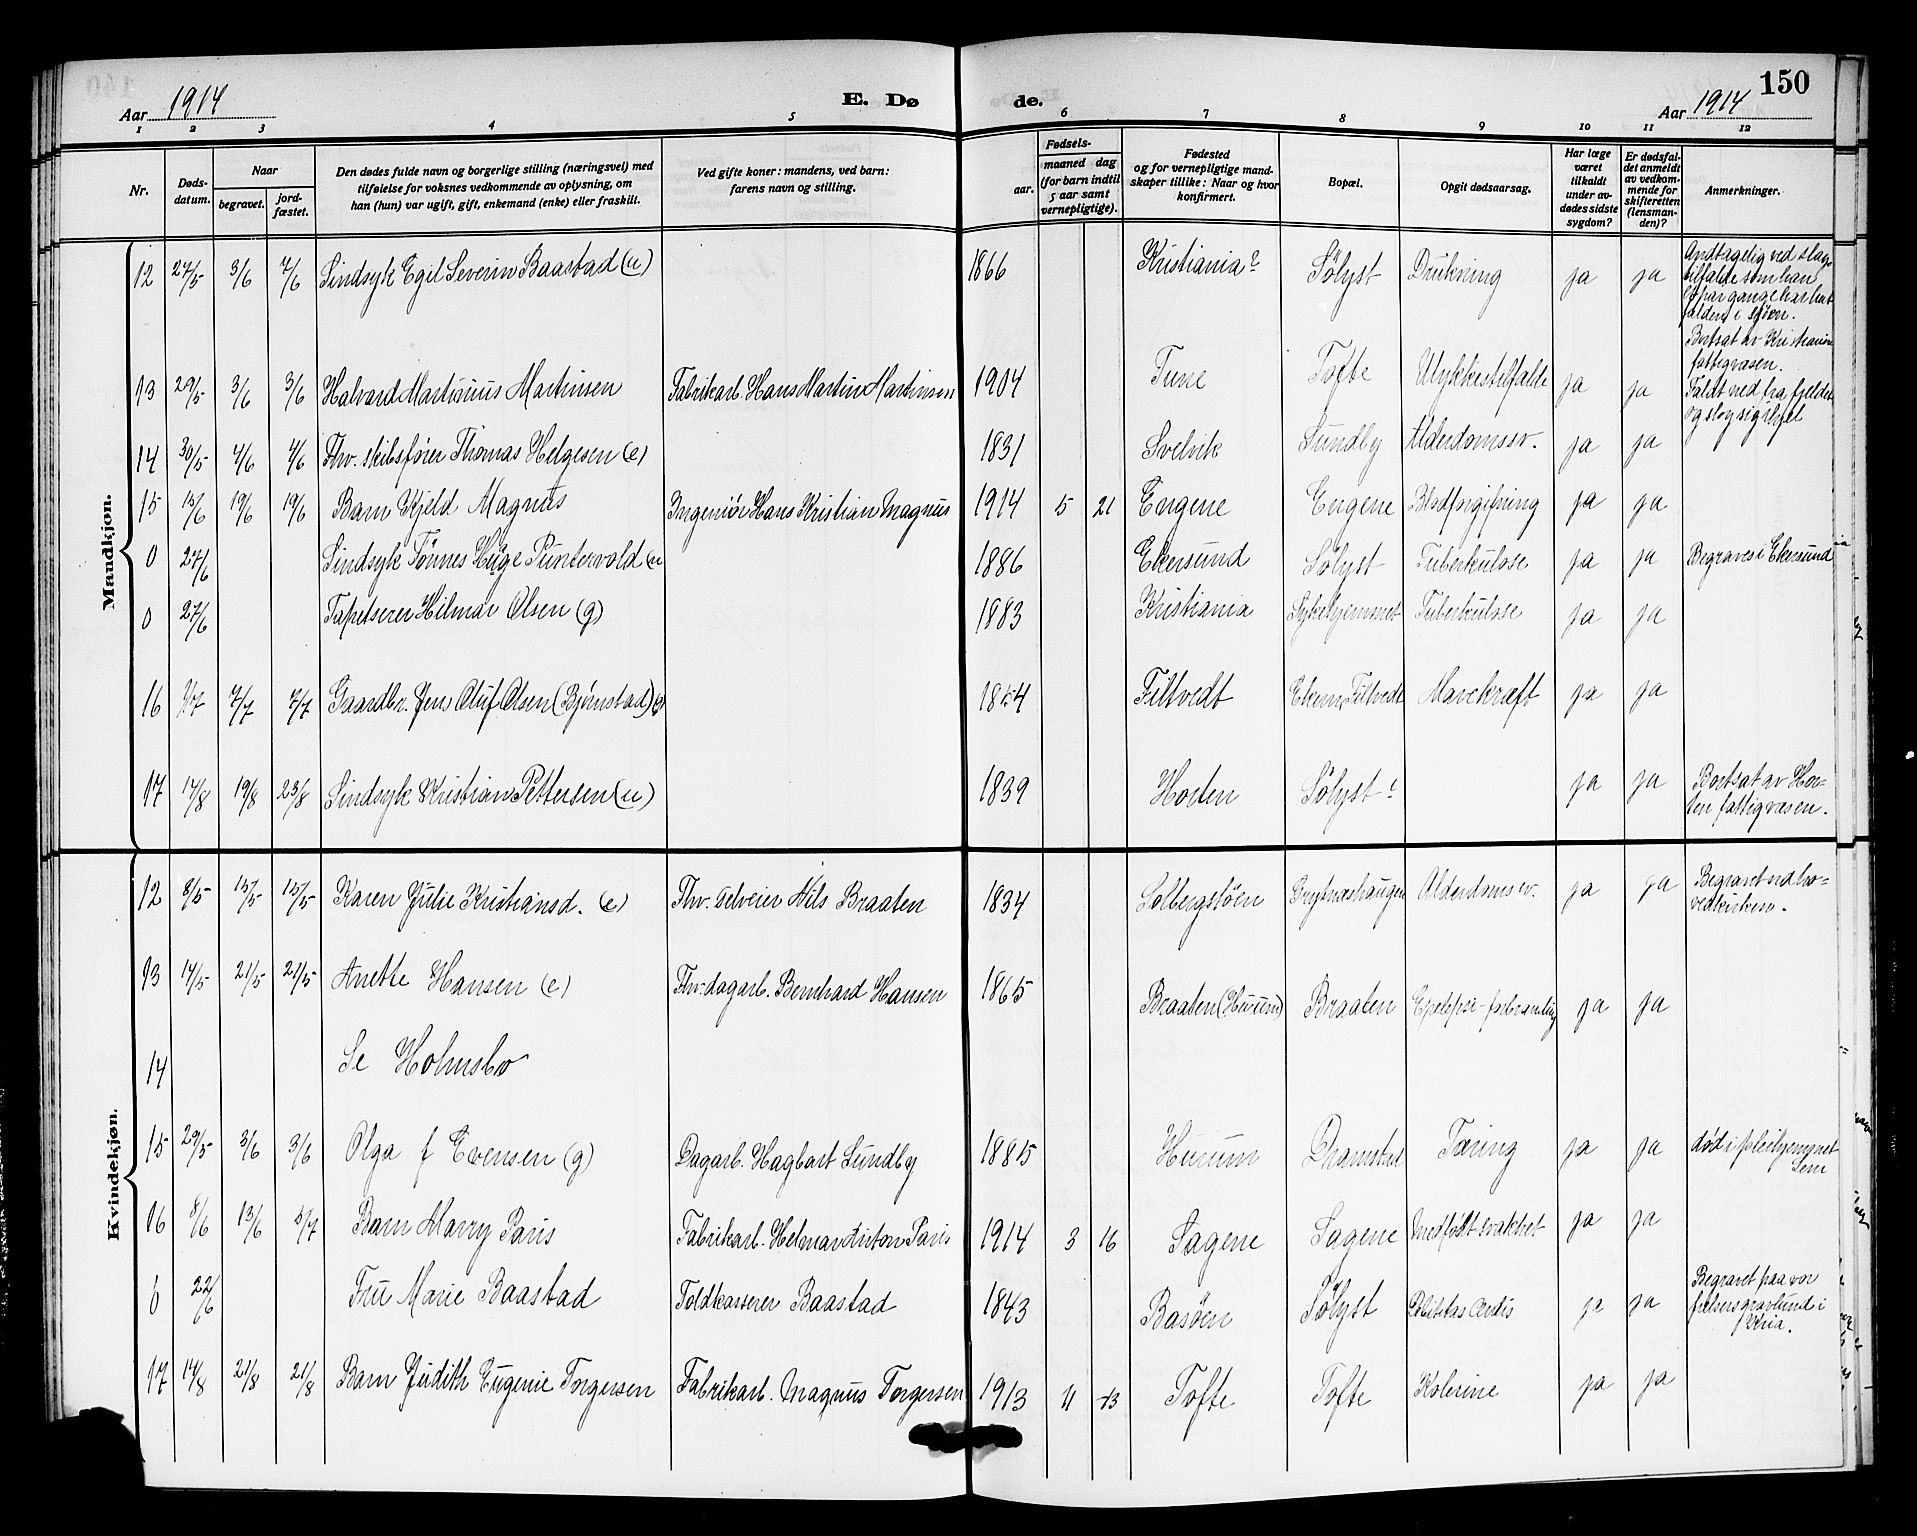 150
Aar 1914
E. Døde.
Aar 1914
1 2 3 4 5 6 7 8 9 10 11 12
Nr.
Døds-datum.
Naar
begravet.
jord-fæstet.
Den dødes fulde navn og borgerlige stilling (næringsvei) med
tilføielse for voksnes vedkommende av oplysning, om
han (hun) var ugift, gift, enkemand (enke) eller fraskilt.
Ved gifte koner: mandens, ved barn:
farens navn og stilling.
Fødsels-
aar.
maaned dag
(for barn indtil
5 aar samt
vernepligtige).
Fødested
og for vernepligtige mand-
skaper tillike: Naar og hvor
konfirmert.
Bopæl.
Opgit dødsaarsag.
Har læge
været
tilkaldt
under av-
dødes sidste
sygdom?
Er dødsfal-
det anmeldt
av vedkom-
mende for
skifteretten
(lensman-
den)?
Anmerkninger.
Mandkjøn.
12 27/5 3/6 7/6 Sindsyk Egil Severin Baastad (u) 1866 Kristiania? Sölyst Drukning ja ja Andtagelig ved slag-
tilfælde som han
et par gange har hat
falden i sjøen.
Bortsat av Kristiania
fattigvæsen.
13 29/5 3/6 3/6 Halvard Martinius Martinsen Fabrikarb. Hans Martin Martinsen 1904 Tune Tofte Ulykkestilfælde ja ja Faldt ned fra fjeldet
og slog sig ihjel
14 30/5 4/6 4/6 Fhv. skibsfører Thomas Helgesen (e) 1831 Svelvik Sundby Alderdomssv. ja ja
15 15/6 19/6 19/6 Barn Kjeld Magnus Ingeniör Hans Kristian Magnus 1914 5 21 Engene Engene Blodforgiftning ja ja
0 27/6 Sindsyk Tönnes Hüge Puntervold (u 1886 Ekersund Sölyst Tuberkulose ja ja Begraves i Ekersund
0 27/6 Tapetserer Hilmar Olsen (g) 1883 Kristiania Sykehjemmet Tuberkulose ja ja
16 1/7 7/7 7/7 Gaardbr. Jens Oluf Olsen (Bjørnstad) 1854 Filtvedt Ekern, Filtvedt Mavekræft ja ja
17 14/8 19/8 23/8 Sindsyk Kristian Pettersen (u) 1839 Horten Sölyst ja ja Bortsat av Hor-
ten fattigvæsen.
Kvindekjøn.
12 8/5 15/5 15/5 Karen Julie Kristiansd. (e) Fhv. selveier Nils Braaten 1834 Solbergstöen Grytnæshaugen Alderdomssv. ja ja Begravet ved ho-
vedkirken.
13 14/5 21/5 21/5 Anette Hansen (e) Fhv. dagarb. Bernhard Hansen 1865 Braaten (Hurum) Braaten Epelepsi-forbrænding ja ja
14 Se Holmsbo
15 29/5 3/6 3/6 Olga f Evensen (g) Dagarb. Hagbart Sundby 1885 Hurum Dramstad Tæring ja ja död i pleiehjemmet
Sem
16 8/6 13/6 5/7 Barn Marry Paris Fabrikarb. Helmar Anton Paris 1914 3 16 Sagene Sagene Medfødt svakhet ja ja
0 22/6 Fru Marie Baastad Toldkasserer Baastad 1843 Basöen Sölyst Debilitas Cordis ja ja Begravet paa vor
frelsers gravlund i
Kria.
17 14/8 21/8 21/8 Barn Judith Eugenie Torgersen Fabrikarb. Magnus Torgersen 1913 11 13 Tofte Tofte Kolerine ja ja